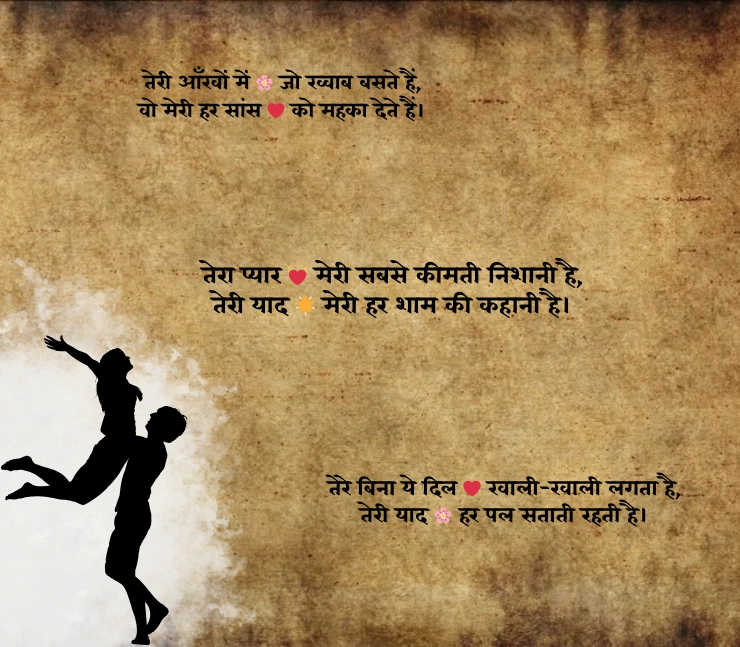 तेरी आँखों में 🌸 जो ख्वाब बसते हैं,
वो मेरी हर सांस ❤️ को महका देते हैं।
तेरा प्यार ❤️ मेरी सबसे कीमती निशानी है,
तेरी याद ☀️ मेरी हर शाम की कहानी है।
तेरे बिना ये दिल ❤️ खाली-खाली लगता है,
तेरी याद 🌸 हर पल सताती रहती है।